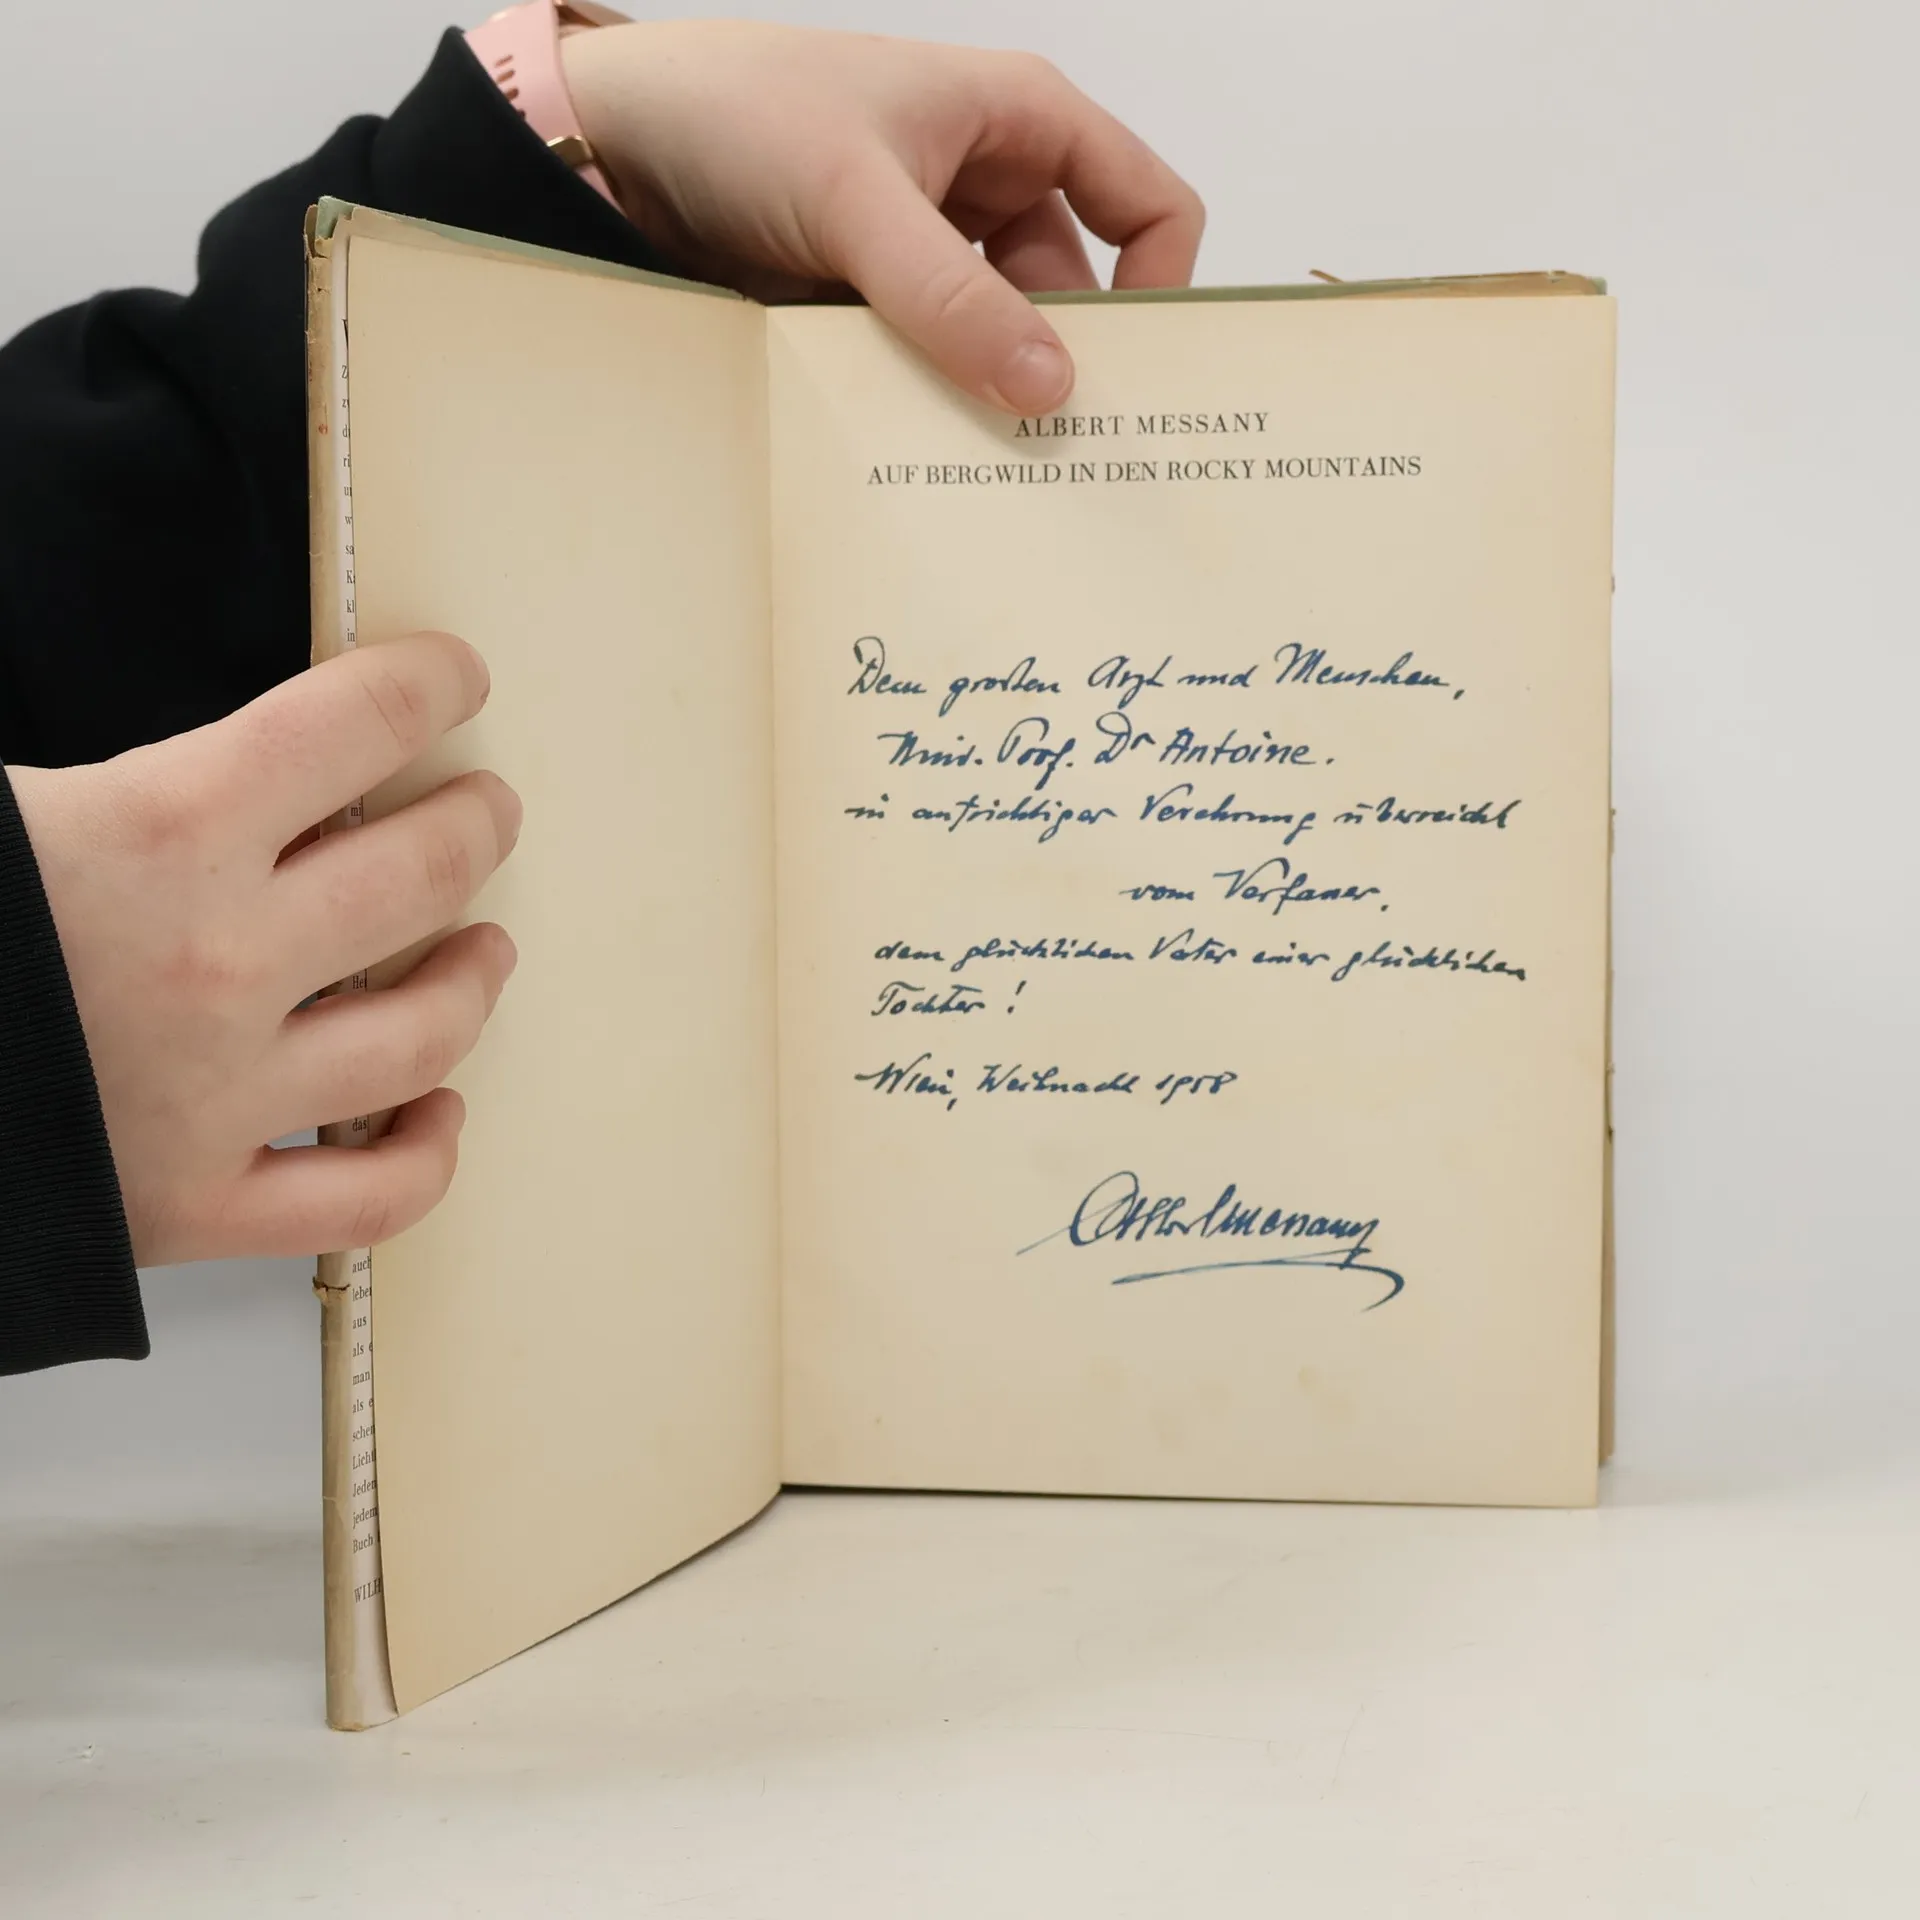 ALBERT MESSANY
AUF BERGWILD IN DEN ROCKY MOUNTAINS
Dem großen Arzt und Menschen,
Prof. Dr Antoine.
in aufrichtiger Verehrung überreicht
vom Verfasser,
dem glücklichen Vater einer glücklichen
Tochter!
Wien, Weihnacht 1958
Albert Messany
mi
He
das
auch
leben
aus
als e
man
als e
schen
Licht
Jedem
jedem
Buch
WILH